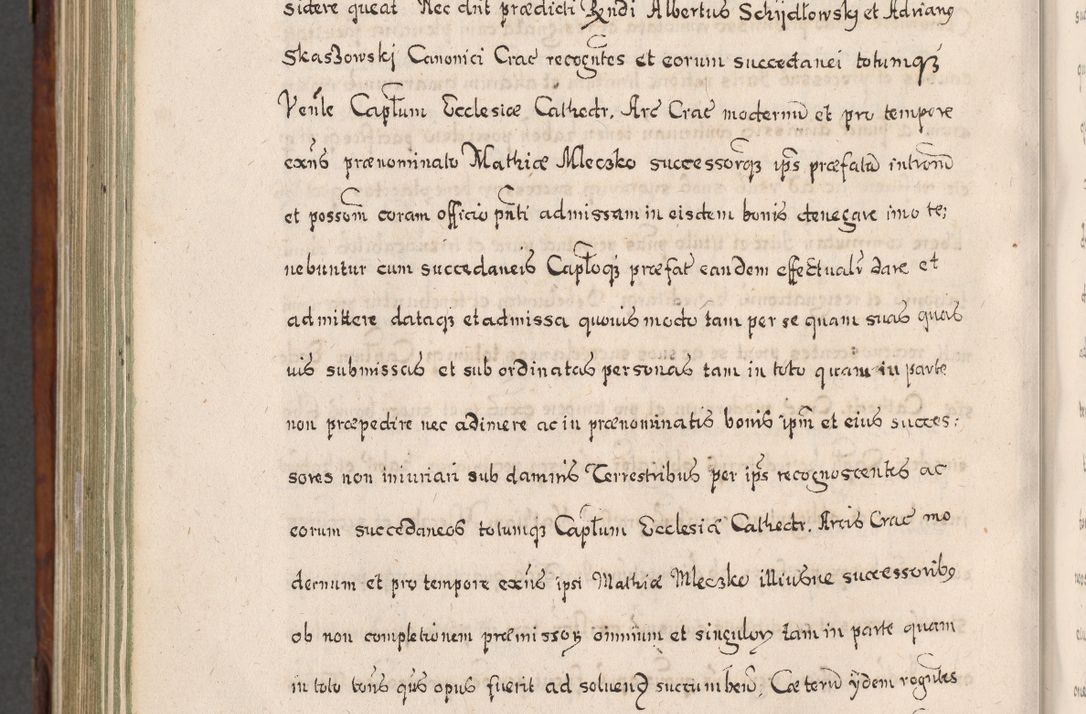 sidere queat Nec dnt prædicti Rndi Albertus Schijdłowskj et Adrianq
Skaszowskj Canonici Crac recogntes et eorum succedanei totumqz
Venle Capłum Ecclesiæ Cathedr. Arc Crac modernũ et pro tempore
exñs prænominato Mathiæ Mleczko successorqz ips præfatũ intromm
et possom coram officio pnti admissam in eisdem bonis denegare imo te;
nebuntur cum succedaneis Capłoqz præfat eandem effectualr dare et
admittere dataqz et admissa quouis modo tam per se quam suas quas
uis submissas et sub ordinatas personas tam in toto quam in parte
non præpedire nec adimere ac in prænominatis bonis ipm et eius succes:
sores non iniuriari sub damnis Terrestribus per ips recognoscentes ac
eorum succedaneos totumqz Capłum Ecclesiæ Cathedr. Arcis Crac mo
dernum et pro tempore exñs ipsi Mathiæ Mleczko illiusue successoribq
ob non completionem præmissoꝝ omnium et singuloꝝ tam in parte quam
in toto toñs qũs opus fuerit ad soluend succumbeñ. Cæterũ ÿdem rogntes